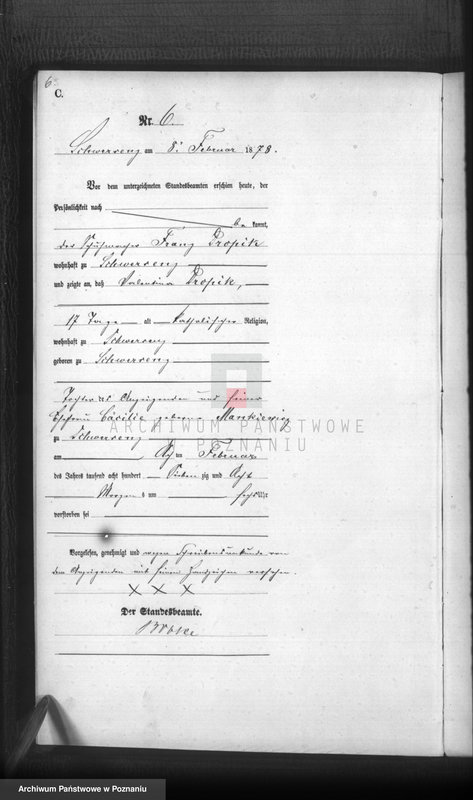 6
C.
Nr. 6.
Schwersenz am 8ten Februar 1878.
Vor dem unterzeichneten Standesbeamten erschien heute, der
Persönlichkeit nach
be kannt,
der Schuhmacher Franz Dropik
wohnhaft zu Schwersenz
und zeigte an, daß Valentina Dropik,
17 Tage alt katholischer Religion,
wohnhaft zu Schwersenz
geboren zu Schwersenz
Tochter des Anzeigenden und seiner
Ehefrau Cäcilie geborene Mankiewicz
ARCHIWUM PAŃSTWOWE
POZNANIU
zu Schwersenz
am Acht ten Februar
des Jahres tausend acht hundert Sieben zig und Acht
Morgens um sechs Uhr
verstorben sei
Vorgelesen, genehmigt und wegen Schreibensunkunde von
dem Anzeigenden mit seinem Handzeichen versehen.
X X X
Der Standesbeamte.
Archiwum Państwowe w Poznaniu